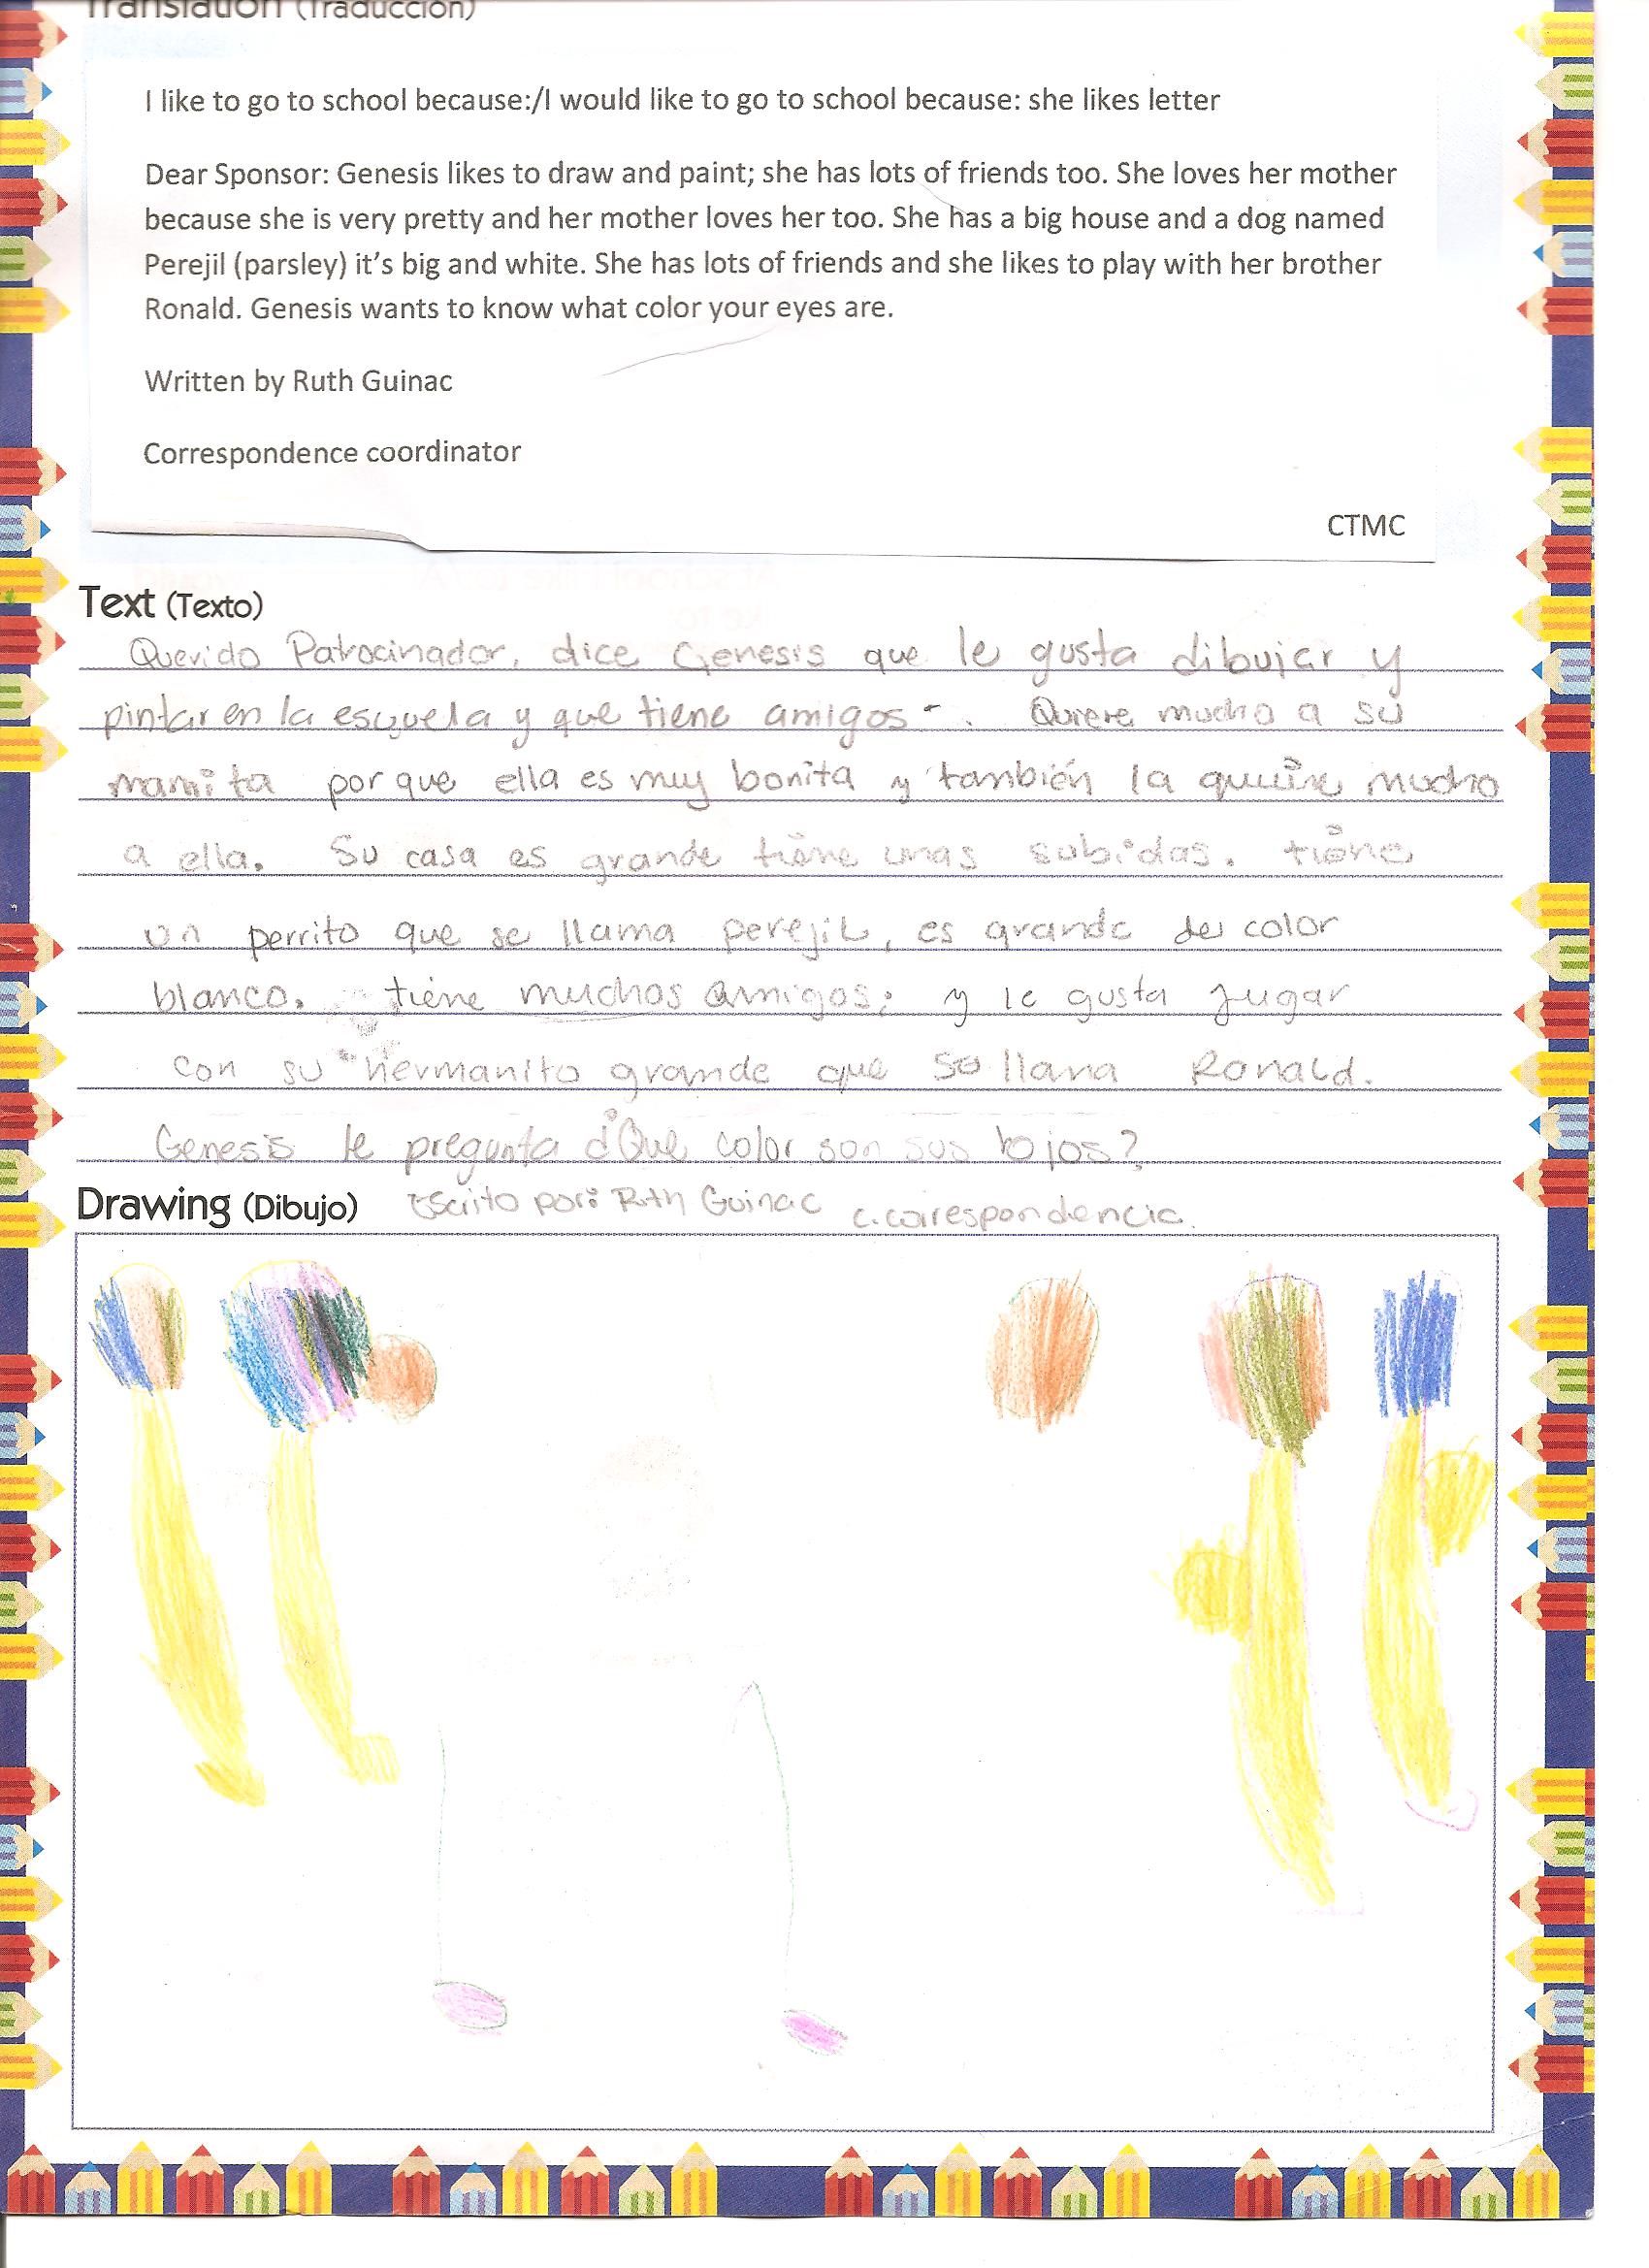 Translation (Traducción)
I like to go to school because:/I would like to go to school because: she likes letter
Dear Sponsor: Genesis likes to draw and paint; she has lots of friends too. She loves her mother
because she is very pretty and her mother loves her too. She has a big house and a dog named
Perejil (parsley) it's big and white. She has lots of friends and she likes to play with her brother
Ronald. Genesis wants to know what color your eyes are.
Written by Ruth Guinac
Correspondence coordinator
CTMC
Text (Texto)
Querido Patrocinador, dice Genesis que le gusta dibujar y
pintar en la escuela y que tiene amigos. Quiere mucho a su
mamita por que ella es muy bonita y también la quiere mucho
a ella. Su casa es grande tiene unas subidas. tiene
un perrito que se llama perejil, es grande de color
blanco. tiene muchos amigos; y le gusta jugar
con su hermanito grande que se llama Ronald.
Genesis le pregunta ¿Que color son sus ojos?
Drawing (Dibujo) Escrito por: Ruth Guinac c. correspondencia.